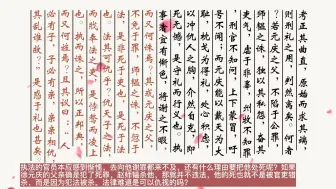 考正其曲直，原始而求其端，
则刑礼之用，判然离矣。何者
？若元庆之父，不陷于公罪，
师韫之诛，独以其私怨，奋其
吏气，虐于非辜，州牧不知罪，
刑官不知问，上下蒙冒，吁
号不闻；而元庆能以戴天为大
耻，枕戈为得礼，处心积虑，
以冲仇人之胸，介然自克，即
死无憾，是守礼而行义也。执
事者宜有惭色，将谢之不暇，
而又何诛焉？其或元庆之父，
不免于罪，师韫之诛，不愆于
法，是非死于吏也，是死于法
也。法其可仇乎？仇天子之法，
而戕奉法之吏，是悖骜而凌上
也。执而诛之，所以正邦典，
而又何旌焉？且其议曰：“人
必有子，子必有亲，亲亲相仇，
其乱谁救？”是惑于礼也甚矣。
执法的官员本应感到惭愧，去向他谢罪都来不及，还有什么理由要把他处死呢？如果
徐元庆的父亲确是犯了死罪，赵师韫杀他，那就并不违法，他的死也就不是被官吏错
杀，而是因为犯法被杀。法律难道是可以仇视的吗？